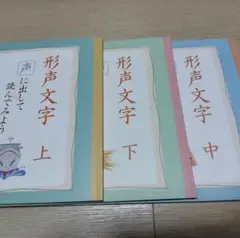 形声文字
上
声に出して
読んでみよう
形声文字
下
形声文字
中